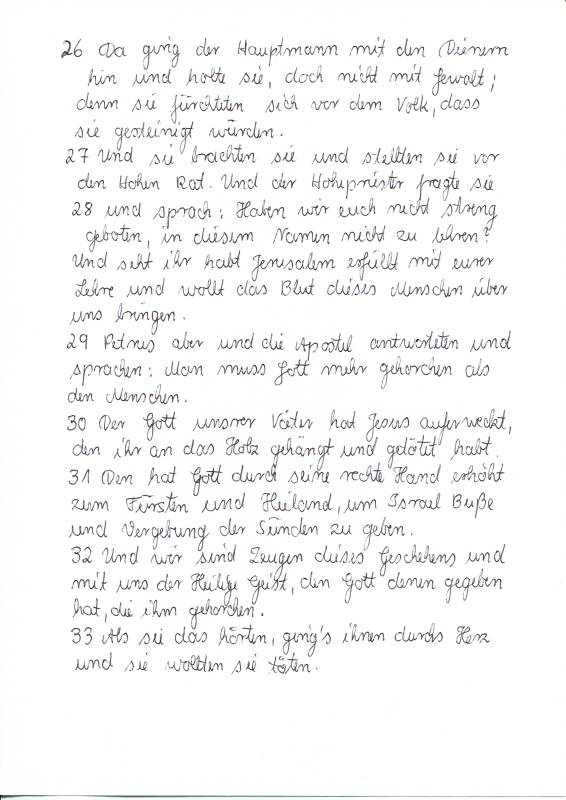 26 Da ging der Hauptmann mit den Dienern
hin und holte sie, doch nicht mit Gewalt;
denn sie fürchteten sich vor dem Volk, dass
sie gesteinigt würden.
27 Und sie brachten sie und stellten sie vor
den Hohen Rat. Und der Hohepriester fragte sie
28 und sprach: Haben wir euch nicht streng
geboten, in diesem Namen nicht zu lehren?
Und seht ihr habt Jerusalem erfüllt mit eurer
Lehre und wollt das Blut dieses Menschen über
uns bringen.
29 Petrus aber und die Apostel antworteten und
sprachen: Man muss Gott mehr gehorchen als
den Menschen.
30 Der Gott unsrer Väter hat Jesus auferweckt,
den ihr an das Holz gehängt und getötet habt.
31 Den hat Gott durch seine rechte Hand erhöht
zum Fürsten und Heiland, um Israel Buße
und Vergebung der Sünden zu geben.
32 Und wir sind Zeugen dieses Geschehens und
mit uns der Heilige Geist, den Gott denen gegeben
hat, die ihm gehorchen.
33 Als sie das hörten, ging's ihnen durchs Herz
und sie wollten sie töten.